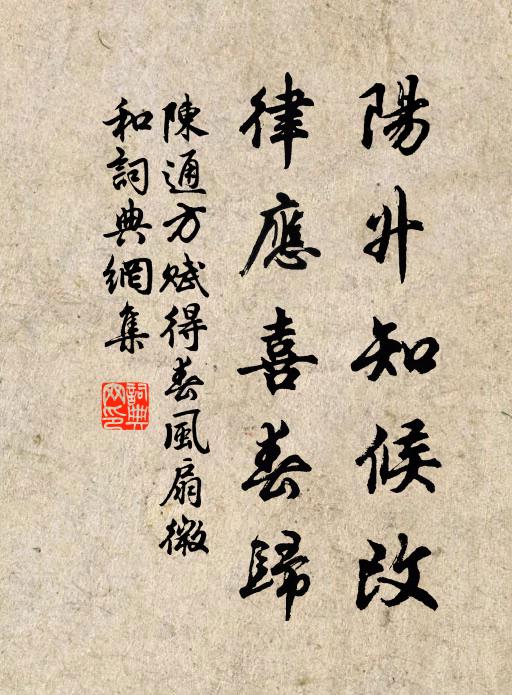 陽升知候改
律應喜春歸
陳通方賦得春風扇微
和詞典網集
詞典網印